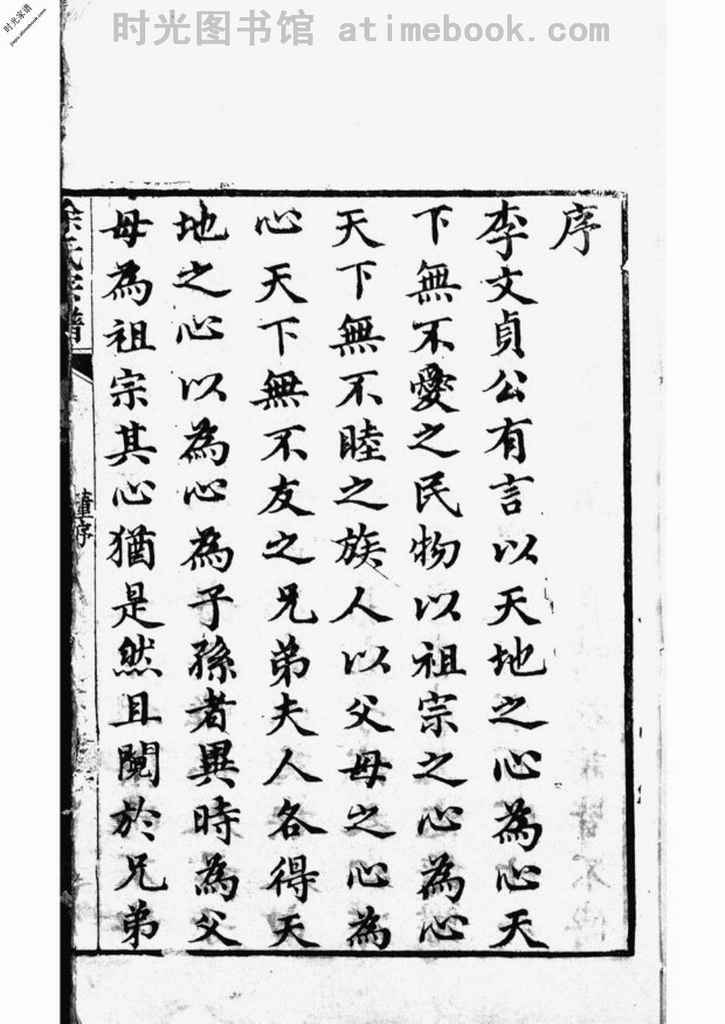 时光图书馆 atimebook.com
时光家谱
序
李文貞公有言以天地之心為心天
下無不愛之民物以祖宗之心為心
天下無不睦之族人以父母之心為
心天下無不友之兄弟夫人各得天
地之心以為心為子孫者異時為父
母為祖宗其心猶是然且鬩於兄弟
余氏宗譜
董序